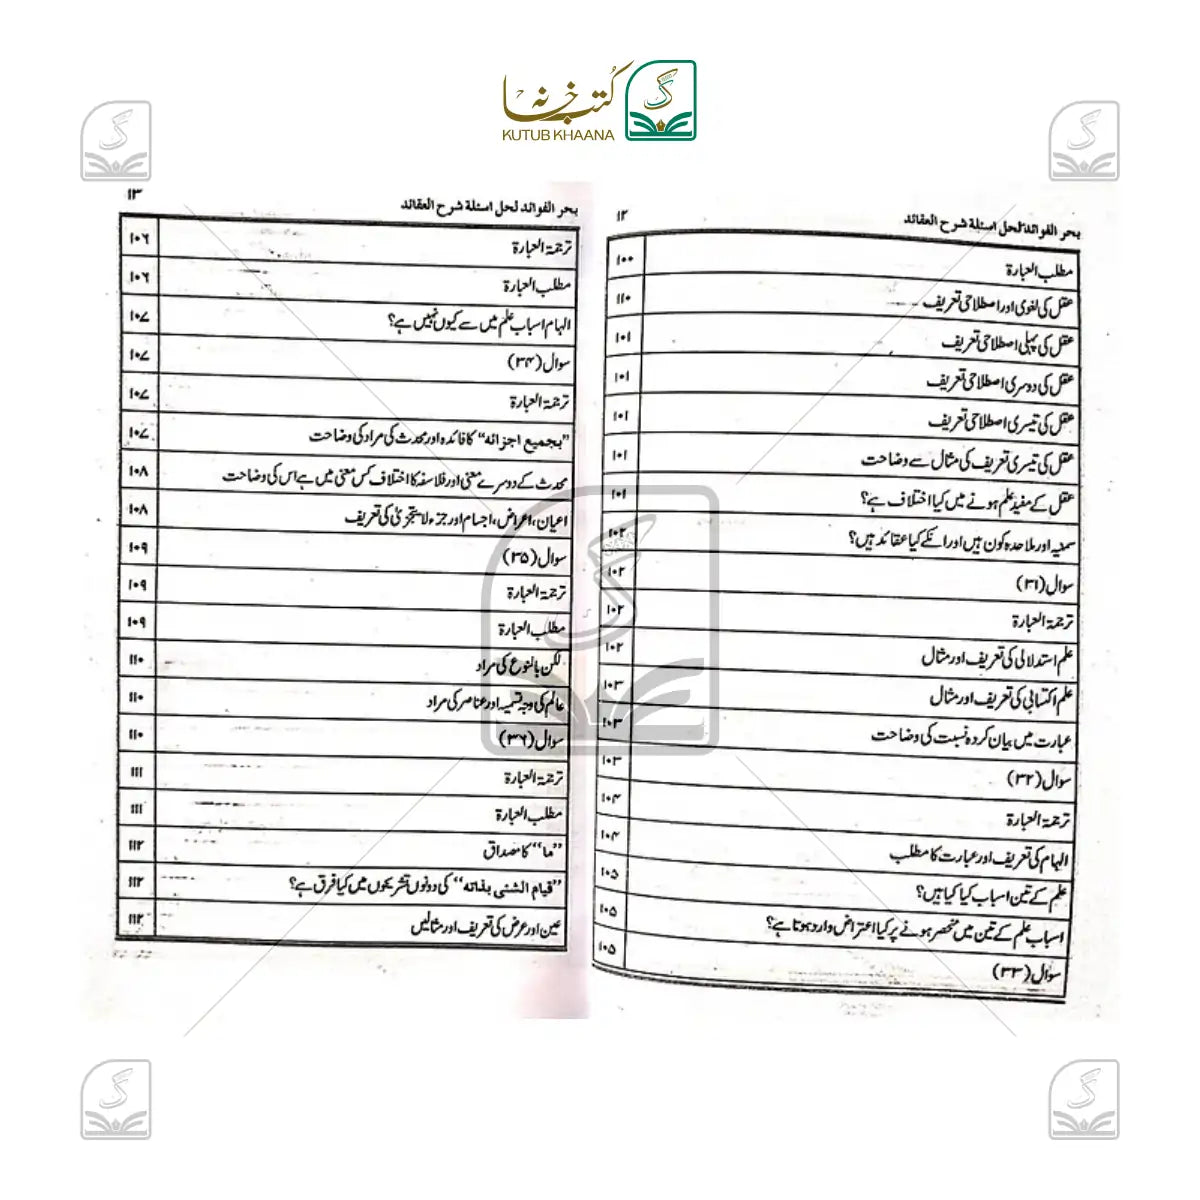 کتب خانہ
KUTUB KHAANA
بحر الفوائد لحل اسئلة شرح العقائد ۱۲
مطلب العبارة ۱۰۰
عقل کی لغوی اور اصطلاحی تعریف ۱۱۰
عقل کی پہلی اصطلاحی تعریف ۱۰۱
عقل کی دوسری اصطلاحی تعریف ۱۰۱
عقل کی تیسری اصطلاحی تعریف ۱۰۱
عقل کی تیسری تعریف کی مثال سے وضاحت ۱۰۱
عقل کے مفید علم ہونے میں کیا اختلاف ہے؟ ۱۰۱
سمنیہ اور ملاحدہ کون ہیں اور انکے کیا عقائد ہیں؟ ۱۰۲
سوال (۳۱) ۱۰۲
ترجمۃ العبارة ۱۰۲
علم استدلالی کی تعریف اور مثال ۱۰۲
علم اکتسابی کی تعریف اور مثال ۱۰۳
عبارت میں بیان کردہ نسبت کی وضاحت ۱۰۳
سوال (۳۲) ۱۰۳
ترجمۃ العبارة ۱۰۴
الہام کی تعریف اور عبارت کا مطلب ۱۰۴
علم کے تین اسباب کیا کیا ہیں؟ ۱۰۵
اسباب علم کے تین میں منحصر ہونے پر کیا اعتراض وارد ہوتا ہے؟ ۱۰۵
سوال (۳۳) ۱۰۵
بحر الفوائد لحل اسئلة شرح العقائد ۱۳
ترجمۃ العبارة ۱۰۶
مطلب العبارة ۱۰۶
الہام اسباب علم میں سے کیوں نہیں ہے؟ ۱۰۷
سوال (۳۴) ۱۰۷
ترجمۃ العبارة ۱۰۷
”بجميع اجزائه“ کا فائدہ اور محدث کی مراد کی وضاحت ۱۰۷
محدث کے دوسرے معنی اور فلاسفہ کا اختلاف کس معنی میں ہے اس کی وضاحت ۱۰۸
اعیان، اعراض، اجسام اور جزء لا یتجزیٰ کی تعریف ۱۰۸
سوال (۳۵) ۱۰۹
ترجمۃ العبارة ۱۰۹
مطلب العبارة ۱۰۹
لکن بالنوع کی مراد ۱۱۰
عالم کی وجہ تسمیہ اور عناصر کی مراد ۱۱۰
سوال (۳۶) ۱۱۰
ترجمۃ العبارة ۱۱۱
مطلب العبارة ۱۱۱
”ما“ کا مصداق ۱۱۲
”قيام الشئى بذاته“ کی دونوں تشریحوں میں کیا فرق ہے؟ ۱۱۲
عین اور عرض کی تعریف اور مثالیں ۱۱۲